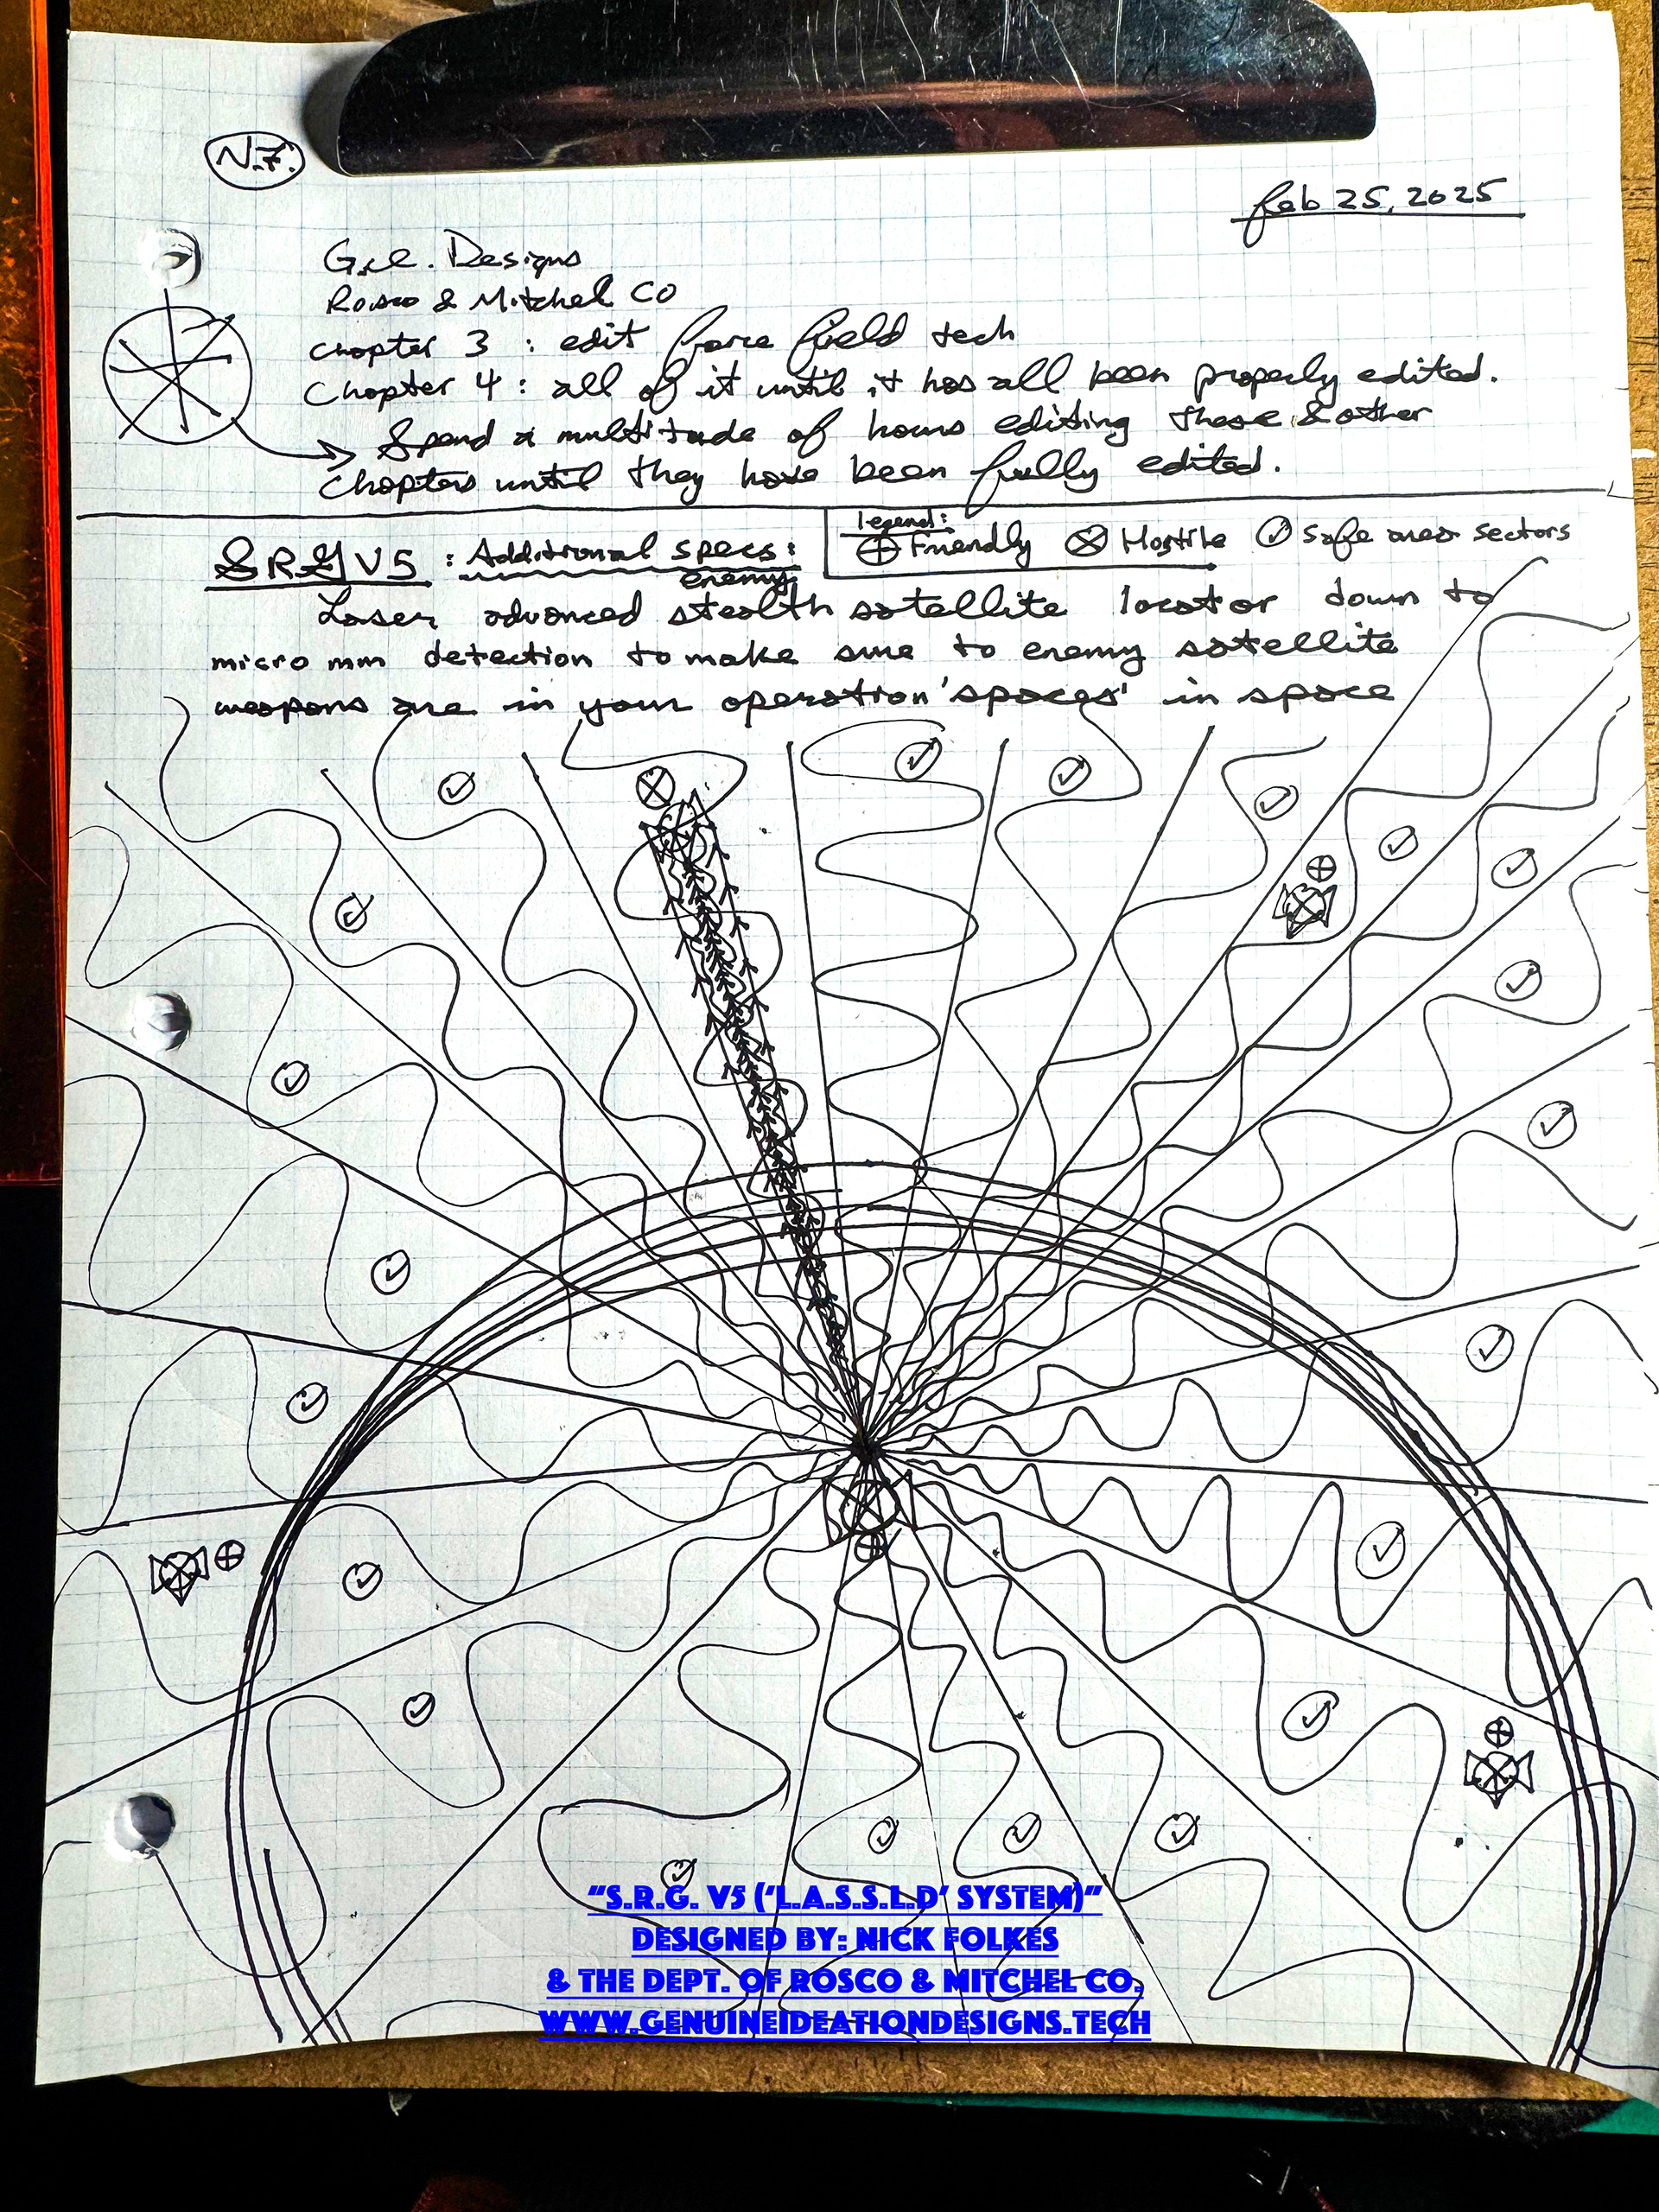 N.F.
Feb 25, 2025
G.I. Designs
Rosco & Mitchel CO
Chapter 3 : edit force field tech
Chapter 4 : all of it until it has all been properly edited.
Spend a multitude of hours editing these & other
Chapters until they have been fully edited.
legend:
Friendly Hostile Safe area sectors
SRG V5 : Additional specs:
enemy
Laser advanced stealth satellite locator down to
micro mm detection to make sure to enemy satellite
weapons are in your operation 'spaces' in space
"S.R.G. V5 ('L.A.S.S.L.D' SYSTEM)"
DESIGNED BY: NICK FOLKES
& THE DEPT. OF ROSCO & MITCHEL CO.
WWW.GENUINEIDEATIONDESIGNS.TECH